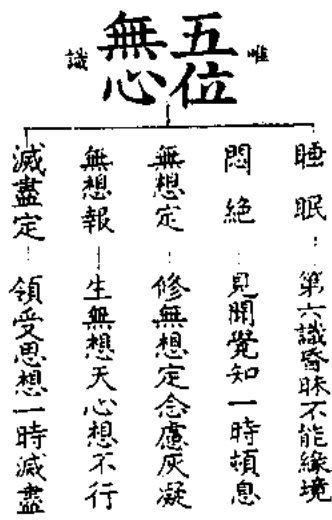 五位無心
唯識
睡眠：第六識昏昧不能緣境
悶絕：見聞覺知一時頓息
無想定：修無想定念慮灰凝
無想報：生無想天心想不行
滅盡定：領受思想一時滅盡